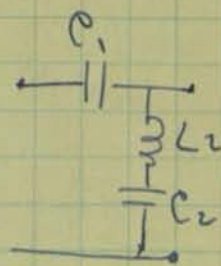 C₁
L₂
C₂